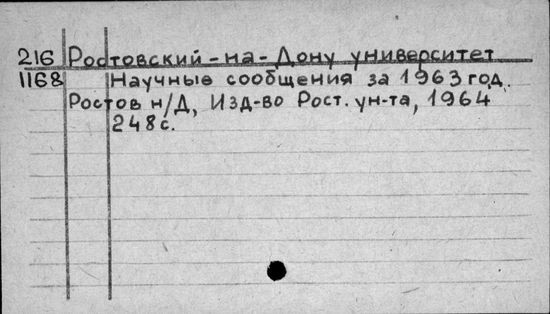 216 Ростовский-на-Дону университет
1168 Научные сообщения за 1963 год.
Ростов н/Д, Изд-во Рост. ун-та, 1964
248с.